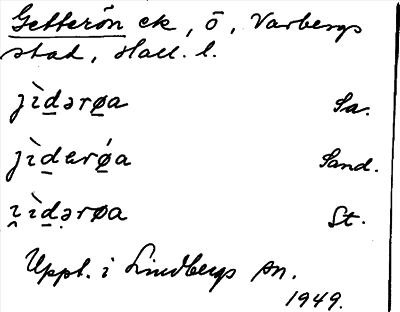 Getterön ek, ö, Varbergs
stad, Hall. l.
ȷìd̲ərø̲a Sa.
ȷìd̲erǿ̲a Sand.
i̯ìd̲ərøa St.
Uppt. i Lindbergs sn.
1949.